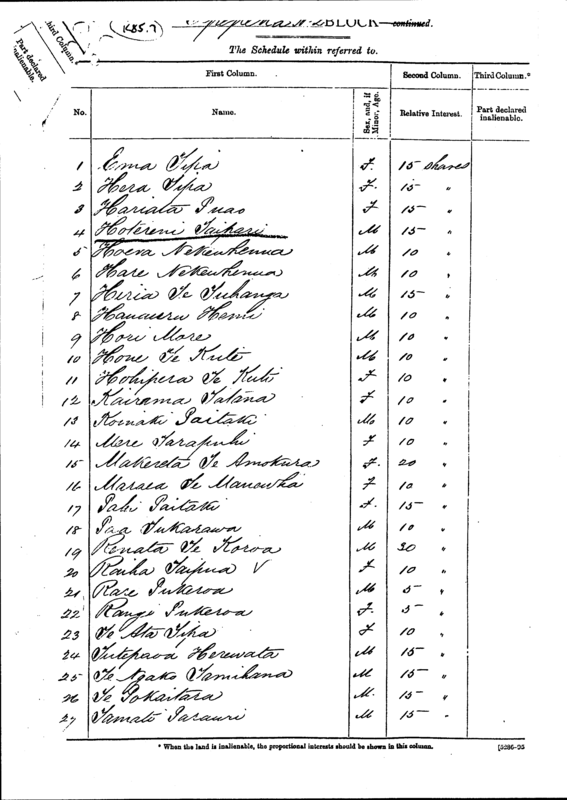 K85.7
BLOCK—continued.
Third Column.
Part declared inalienable.
The Schedule within referred to.
First Column. Second Column. Third Column.*
No. Name. Sex, and, if Minor, Age. Relative Interest. Part declared inalienable.
1 Ema Tipa F. 15 shares
2 Hera Tipa F. 15 "
3 Hariata Puao F 15 "
4 Hotereni Taipari M 15 "
5 Hoera Nekewhenua M 10 "
6 Hare Nekewhenua M 10 "
7 Hiria Te Tuhanga M 15 "
8 Hemi M 10 "
9 Hori More M 10 "
10 Hone Te Kuti M 10 "
11 Hohipera Te Kuti F 10 "
12 Kairama Tatana F 10 "
13 Komaki Paitaki M 10 "
14 Mere Tarapuhi F 10 "
15 Makereta Te Amokura F. 20 "
16 Maraea Te Manewha F 10 "
17 Pahi Paitaki F. 15 "
18 Paa Tukarawa M 10 "
19 Renata Te Koroa M 30 "
20 Rauha Taipua V F 10 "
21 Rare Pukeroa M 5 "
22 Rangi Pukeroa F 5 "
23 Te Ata Tipa F 10 "
24 Herewata M 15 "
25 Te Ngako Tamihana M 15 "
26 Te Pokaitara M. 15 "
27 Tamati Paraure M 15 "
* When the land is inalienable, the proportional interests should be shown in this column. [5286-95